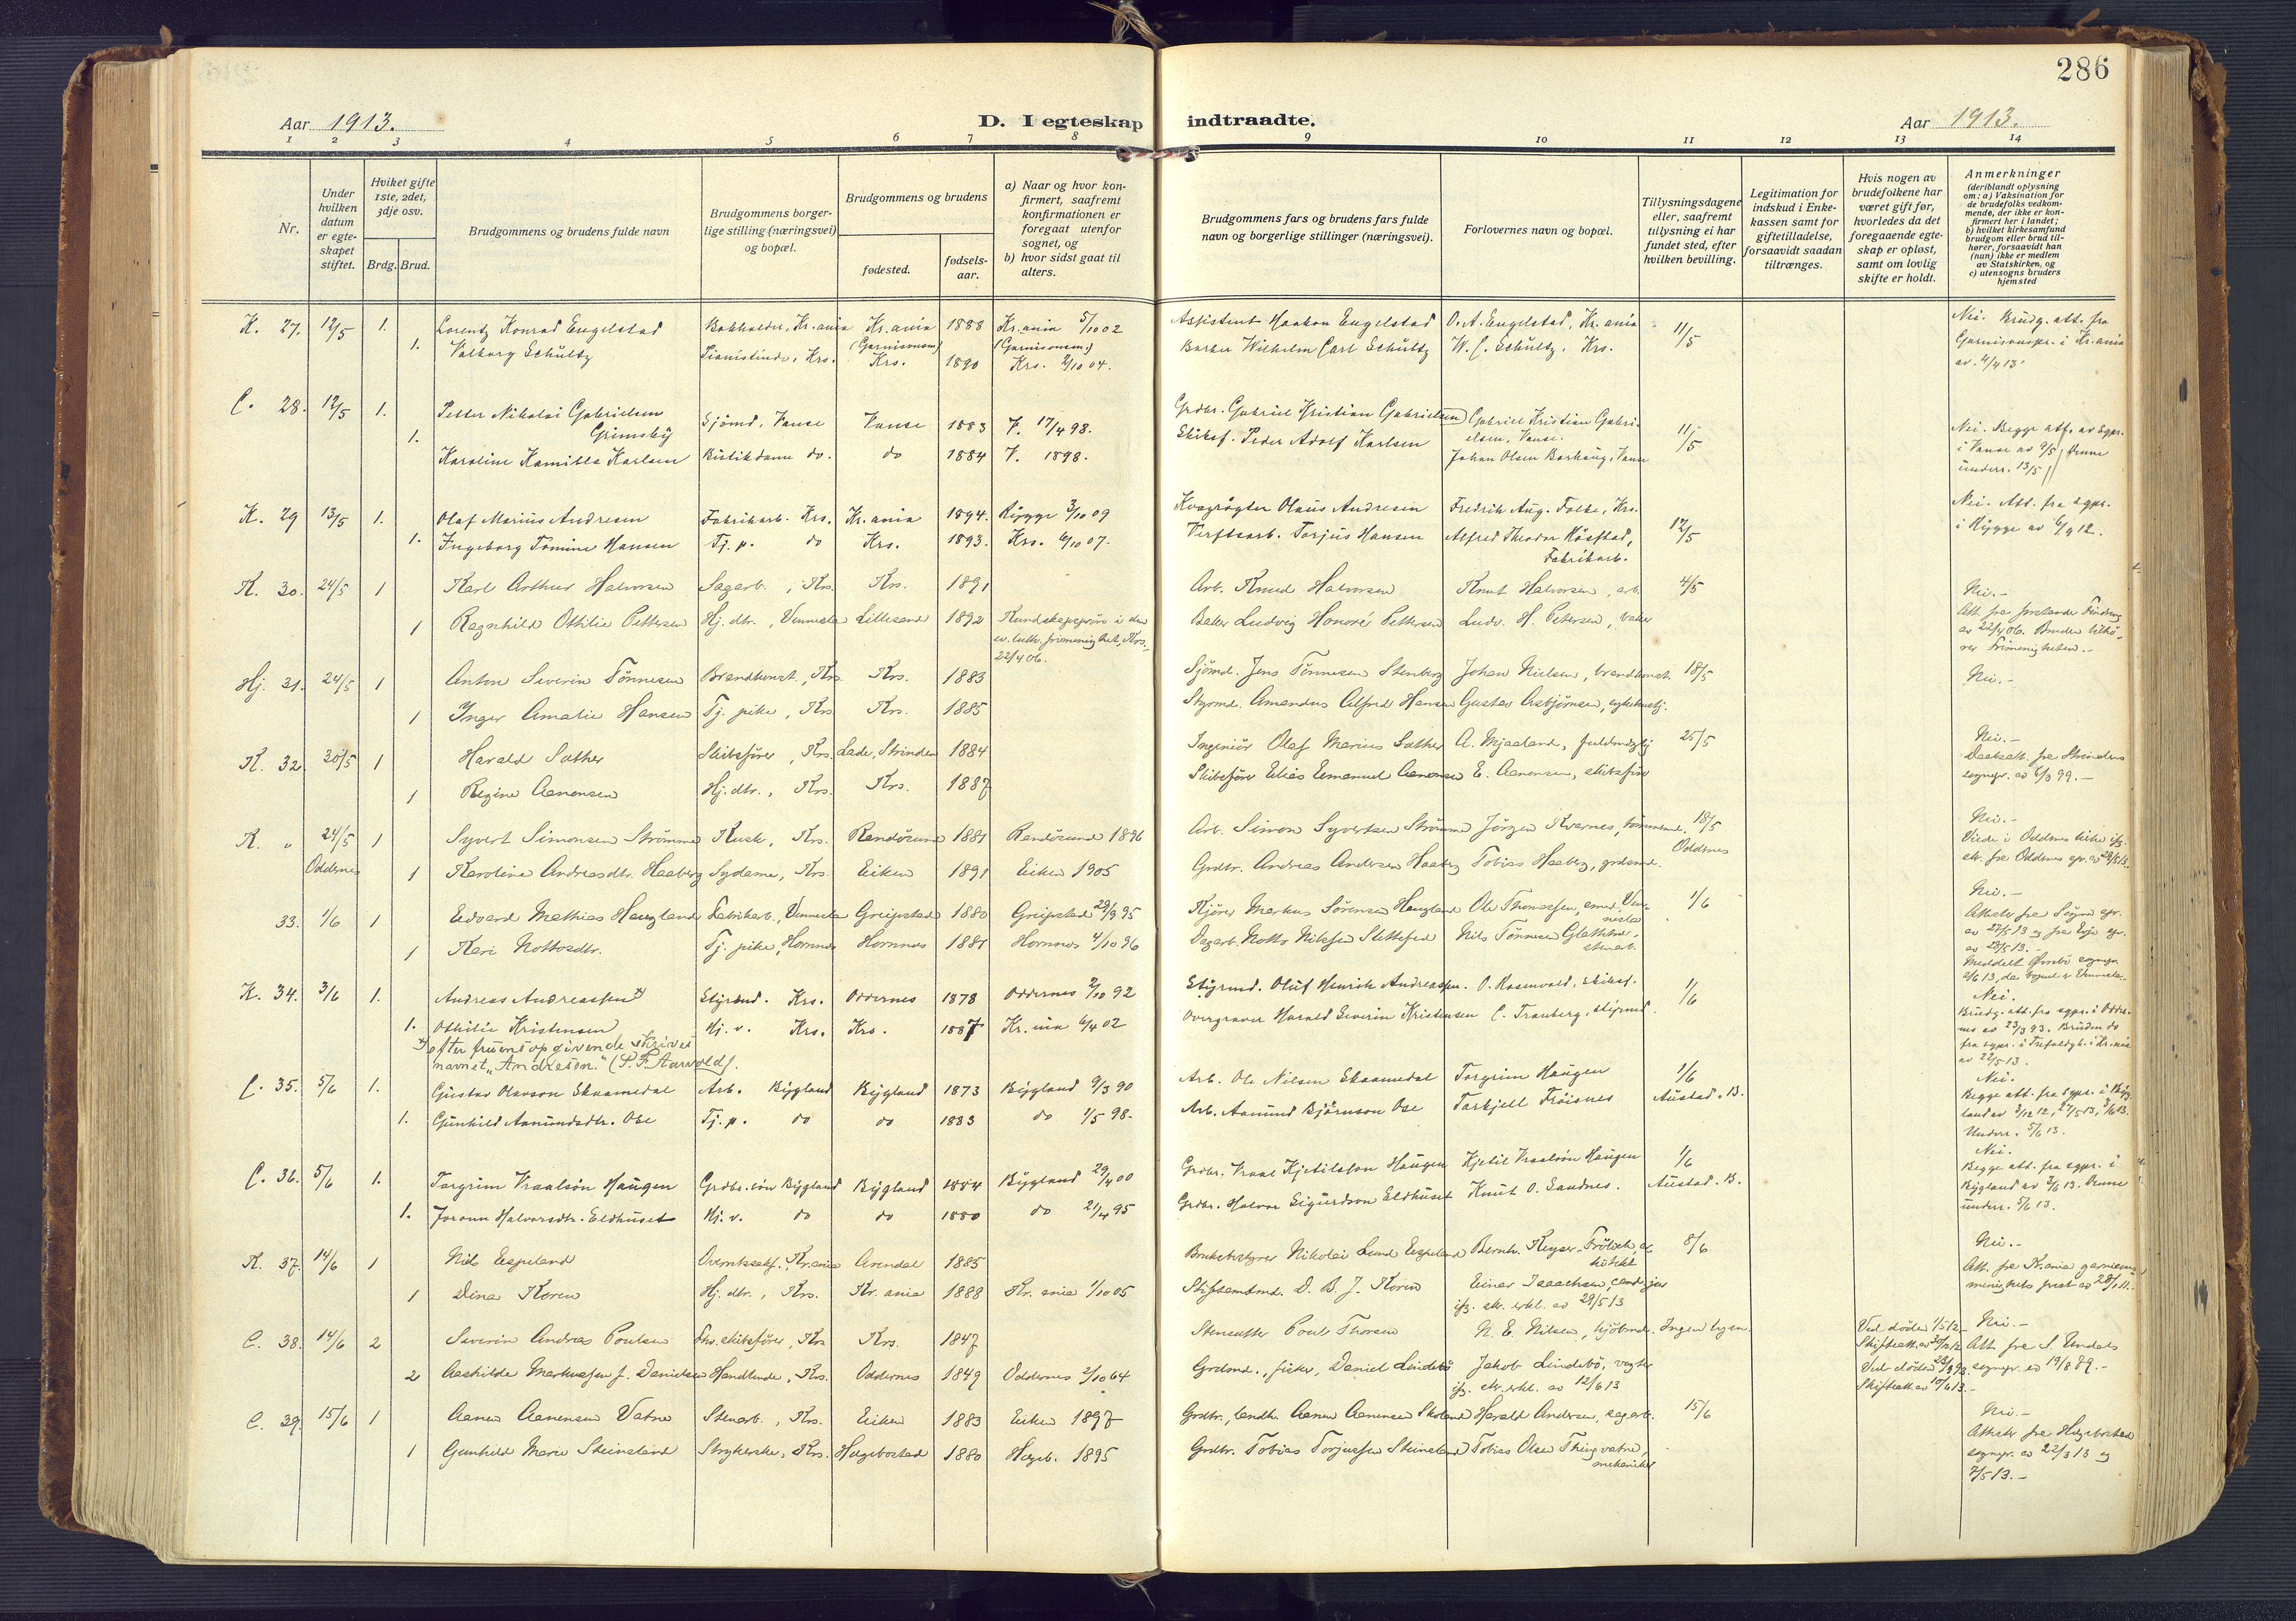 286
Aar 1913.
D. I egteskap indtraadte.
Aar 1913.
1 2 3 4 5 6 7 8 9 10 11 12 13 14
Nr.
Under hvilken datum er egteskapet stiftet.
Hviket gifte 1ste, 2det, 3dje osv.
Brdg. Brud.
Brudgommens og brudens fulde navn
Brudgommens borgerlige stilling (næringsvei) og bopæl.
Brudgommens og brudens
fødested.
fødselsaar.
a) Naar og hvor konfirmert, saafremt konfirmationen er foregaat utenfor sognet, og
b) hvor sidst gaat til alters.
Brudgommens fars og brudens fars fulde navn og borgerlige stillinger (næringsvei).
Forlovernes navn og bopæl.
Tillysningsdagene eller, saafremt tillysning ei har fundet sted, efter hvilken bevilling.
Legitimation for indskud i Enkekassen samt for giftetilladelse, forsaavidt saadan tiltrænges.
Hvis nogen av brudefolkene har været gift før, hvorledes da det foregaaende egteskap er opløst, samt om lovlig skifte er holdt.
Anmerkninger
(deriblandt oplysning om: a) Vaksination for de brudefolks vedkommende, der ikke er konfirmert her i landet;
b) hvilket kirkesamfund brudgom eller brud tilhører, forsaavidt han (hun) ikke er medlem av Statskirken, og
c) utensogns bruders hjemsted
K. 27. 12/5 1. Lorentz Konrad Engelstad Bokholder, Kr.ania Kr.ania (Garnisonsm) 1888 Kr.ania 5/10 02 (Garnisonsm.) Assistent Haakon Engelstad O. A. Engelstad, Kr.ania 11/5 Nei. Brudg. att. fra Garnisonspr. i Kr.ania av. 4/4 13.
1. Valborg Schültz Pianistinde, Krs. Krs. 1890 Krs. 2/10 04. Barber Wilhelm Carl Schültz W. C. Schültz, Krs.
C. 28. 12/5 1. Petter Nikolai Gabrielsen Grimsby Sjømd, Vanse Vanse 1883 V. 17/4 98. Grdbr. Gabriel Kristian Gabrielsen Gabriel Kristian Gabrielsen, Vanse. 11/5 Nei. Begge att. av sgpr. i Vanse av 9/5, denne underr. 13/5
1. Karoline Kamilla Karlsen Butikdame do. do 1884 V. 1898. Skibsf. Peder Adolf Karlsen Johan Olsen Borhaug, Vanse
K. 29 13/5 1. Olaf Marius Andresen Fabrikarb. Krs. Kr.ania 1894. Rygge 3/10 09 Kvægrøgter Olaus Andresen Fredrik Aug. Folke, Krs. 12/5 Nei. Att. fra sgpr. i Rygge av 6/9 12.
1. Ingeborg Tomine Hansen Tj. p. do Krs. 1893. Krs. 6/10 07. Verftsarb. Torjus Hansen Alfred Theodor Røsstad, Fabrikarb.
K. 30. 24/5 1 Karl Arthur Halvorsen Sagarb., Krs. Krs. 1891 Arb. Knud Halvorsen Knut Halvorsen, arb. 4/5 Nei.-
1 Ragnhild Othilie Pettersen Hj. dtr., Vennesla Lillesand 1892 Kundskapsprøve i den ev. luth. frimenighet, Krs. 22/4 06. Baker Ludvig Honoré Pettersen Ludv. H. Petersen, baker Att. fra forstander av 22/4 06. Bruden tilhører Frimenigheten.-
Hj. 31. 24/5 1 Anton Severin Tønnesen Brandkonst., Krs Krs. 1883 Sjømd. Jens Tønnesen Stenberg Johan Nielsen, brandkonst. 18/5 Nei.-
1 Inger Amalie Hansen Tj. pike, Krs Krs. 1885 Styrmd. Amandus Alfred Hansen Gustav Asbjørnsen, sykehustj.
K. 32 30/5 1 Harald Sæther Skibsfører, Krs. Lade, Strinden 1884 Ingeniör Olaf Marius Sæther A. Mjaaland, fuldmægtig 25/5 Nei.- Daabsatt. fra Strindens sognepr. av 6/3 99.-
1 Regine Aanonsen Hj. dtr., Krs. Krs. 1887 Skibsfører Elias Emanuel Aanonsen E. Aanonsen, skibsfører
K. " 24/5 Oddernes 1 Syvert Simonsen Strømme Kusk, Krs. Randøsund 1881 Randøsund 1896 Arb. Simon Syvertsen Strømme Jørgen Kvarnes, tømmermd. 18/5 Oddernes Nei.- Viede i Oddernes kirke
1 Karoline Andreasdtr. Haaberg Sydame, Krs. Eiken 1891 Eiken 1905 Grdbr. Andreas Andersen Haaberg Tobias Haaberg, grdmd.
33. 1/6 1 Edvard Mathias Haugland Fabrikarb., Vennesla Greipstad 1880 Greipstad 29/9 95 Kjører Markus Sørensen Haugland Ole Thomassen, smed, Vennesla 1/6 Nei.- Attester fra Søgne spr. av 27/5 13 og fra Evje spr. av 28/5 13.-
1 Kari Nottosdtr. Tj. pike, Hornnes Hornnes 1881 Hornnes 4/10 96 Dagarb. Notto Nilssen Slettefed Nils Tønnesen
K. 34. 3/6 1. Andreas Andreassen *) Styrmd. Krs. Oddernes 1878 Oddernes 2/10 92 Styrmd. Oluf Henrik Andreassen. O. Rosenvold, skibsf. 1/6 Nei. Brudg. att. fra sgpr. i Oddernes av 23/3 93. Bruden do fra sgpr. i Trefoldigh. i Kr.ania av 22/5 13.
1. Othilie Kristensen Hj. v. Krs. Krs. 1887 Kr.nia 6/4 02 Overgraver Harald Severin Kristensen C. Trauberg, styrmd.
*) efter fruens opgivende skrives navnet "Andresen." (S. F. Aarvold).
C. 35. 5/6 1. Gustav Olavson Skaamedal Arb. Bygland Bygland 1873 Bygland 9/3 90 Arb. Ole Nilsen Skaamedal Torgrim Haugen 1/6 Austad. B. Nei. Begge att. fra sgpr. i Bygland av 3/12 12, 27/5 13, 3/6 13. Underr. 5/6 13.
1. Gunhild Aanundsdtr. Ose Tj. p. do do 1883 do 1/5 98. Arb. Aanund Bjørnson Ose Tarkjell Frøisnes
C. 36. 5/6 1. Torgrim Vraalson Haugen Grdbr.søn Bygland Bygland 1884 Bygland 29/4 00 Grdbr. Vraal Kjetilsson Haugen Kjetil Vraalson Haugen 1/6 Austad. B. Nei. Begge att. fra sgpr. i Bygland av 3/6 13. Denne underr. 5/6 13.
1. Jorann Halvorsdtr. Eldhuset Hj. v. do do 1880 do 21/4 95 Grdbr. Halvor Sigurdson Eldhuset Knut O. Sandnes.
K. 37. 14/6 1 Nils Espeland Overretssakf. Kr.ania Arendal 1885 Bruksbestyrer Nikolai Lund Espeland Bernh. Keyser-Frölich, arkitekt 8/6 Nei.- Att. fra Kr.ania garnisonsmenighets prest av 28/1 11.-
1 Dina Koren Hj. dtr., Krs. Kr. ania 1888 Kr. ania 1/10 05 Stiftamtmd. D. B. J. Koren Einar Isaachsen, cand. jur ifg. skr. erkl. av 29/5 13
C. 38. 14/6 2 Severin Andreas Poulsen Fhv. skibsfører, Krs Krs. 1847 Stensætter Poul Thorsen N. E. Nilsen, kjøbmd. Ingen lysn. Ved døden 1/5 12- Skifteatt. av 30/12 12 Nei.-
2 Aashilde Markussen f. Danielsen Handlende, Krs. Oddernes 1849 Oddernes 2/10 64 Grdmd., fisker, Daniel Lindebø Jakob Lindebø, vegter ifg. skr. erkl. av 12/6 13 Ved døden 23/3 93 Skifteatt. av 10/6 13.- Att. fra S. Undals sognepr. av 19/8 89.-
C. 39. 15/6 1 Aanen Aanensen Vatne Stenarb., Krs. Eiken 1883 Eiken 1897 Grdbr., landh. Aanen Aanensen Skeland Harald Andersen, sagarb. 15/6 Nei.- Attester fra Hægebostad sognepr. av 22/3 13 og 7/5 13.-
1 Gunhild Marie Steinsland Strykerske, Krs. Hægebostad 1880 Hægeb. 1895 Grdbr. Tobias Torjussen Steinsland Tobias Olsen Thingvatne, mekaniker